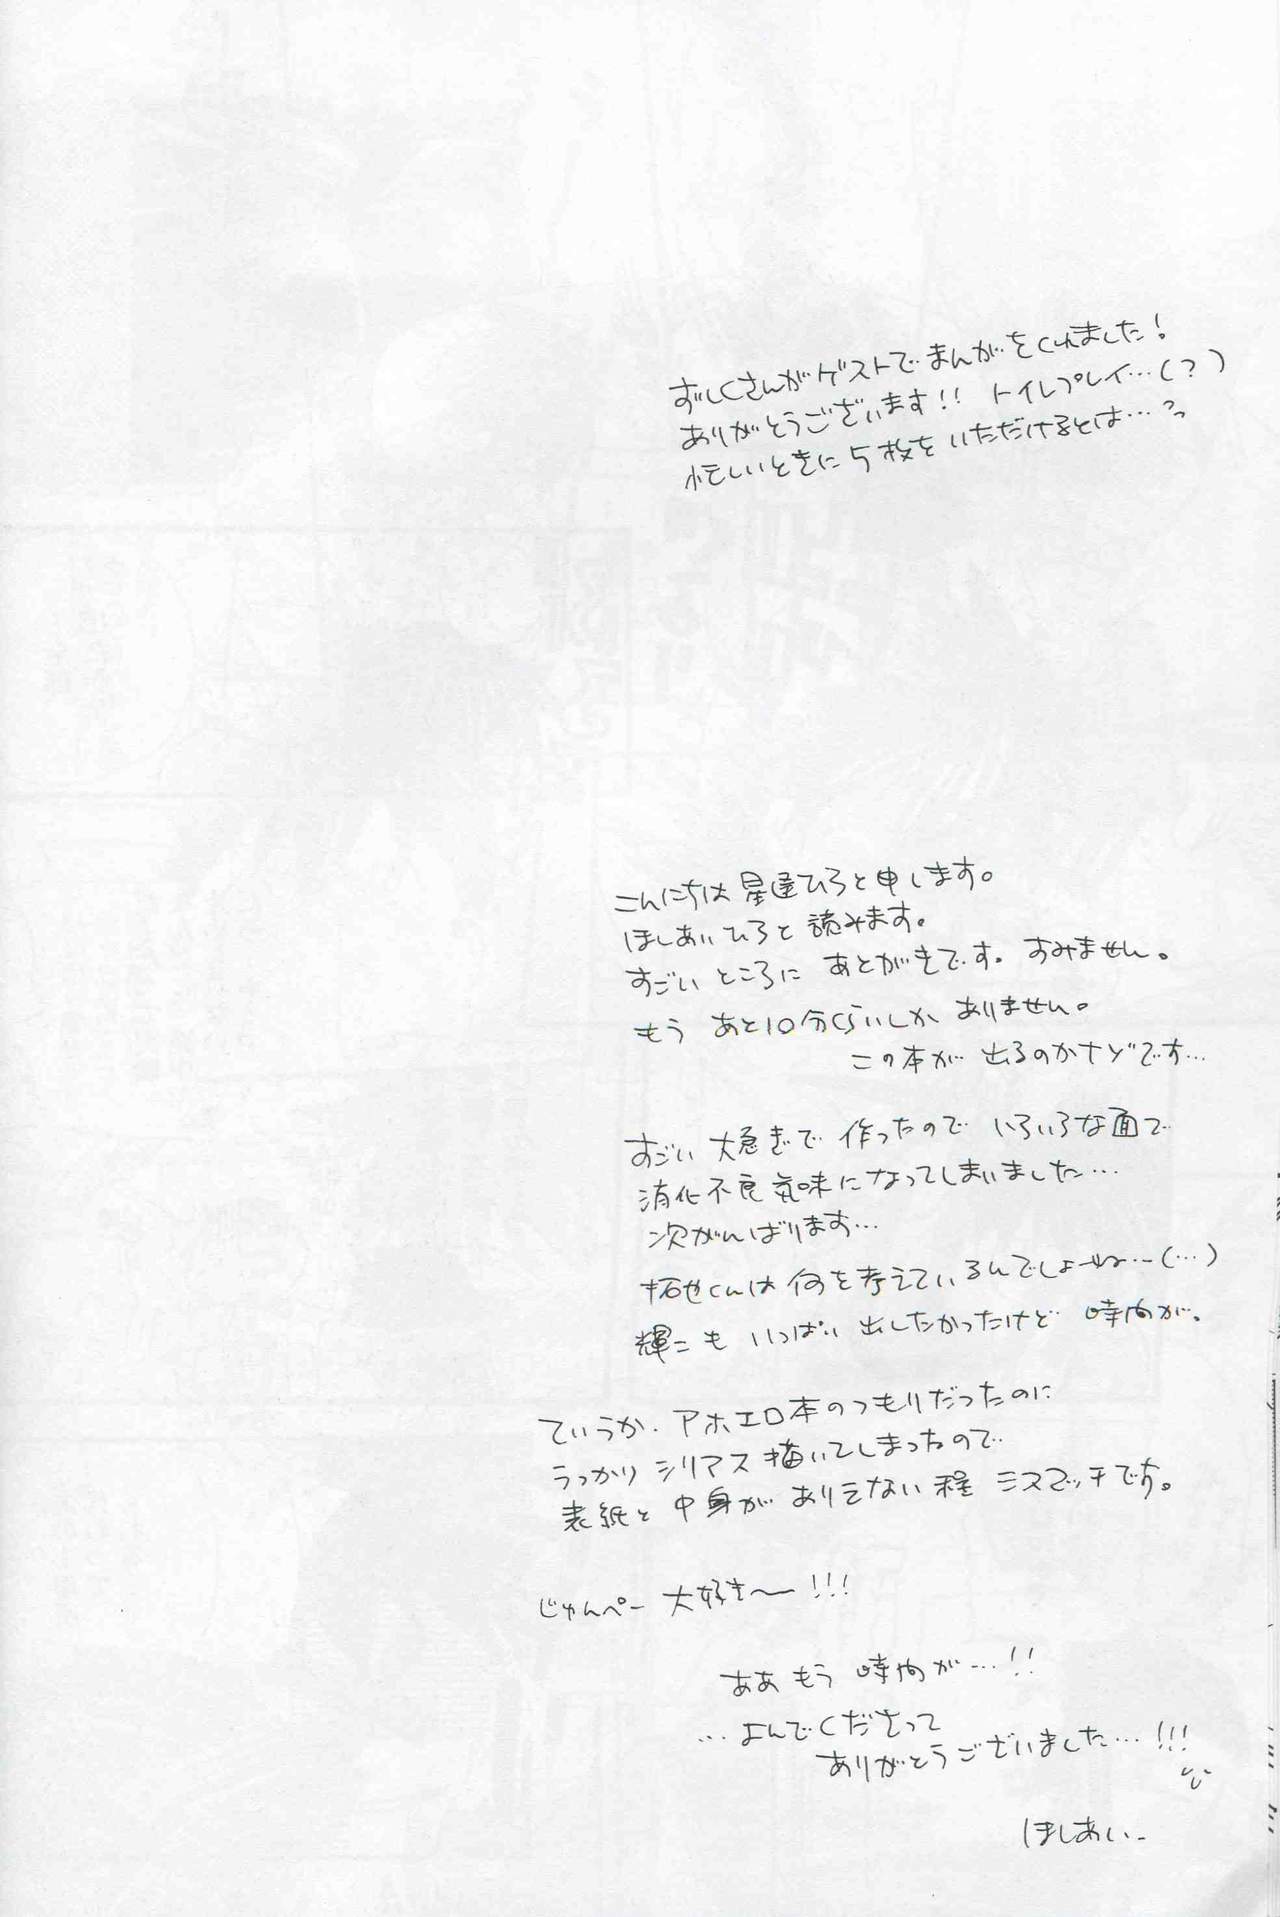 ずしくさんがゲストでまんがをくれました!
ありがとうございます!! トイレプレイ…(?)
忙しいときに5枚をいただけるとは…
こんにちは 星逢ひろと申します。
ほしあいひろと 読みます。
すごいところに あとがきです。すみません。
もう あと10分くらいしか ありません。
この本が 出るのかナゾです…
すごい 大急ぎで 作ったので いろいろな面で
消化不良気味になってしまいました…
次がんばります…
拓也くんは何を考えているんでしょーね…(…)
輝二も いっぱい 出したかったけど 時間が。
ていうか、アホエロ本のつもりだったのに
うっかり シリアス描いてしまったので
表紙と 中身が ありえない程 ミスマッチです。
じゅんぺー 大好き〜!!!
ああ もう 時間が…!!
…よんでくださって
ありがとうございました…!!!
ほしあい